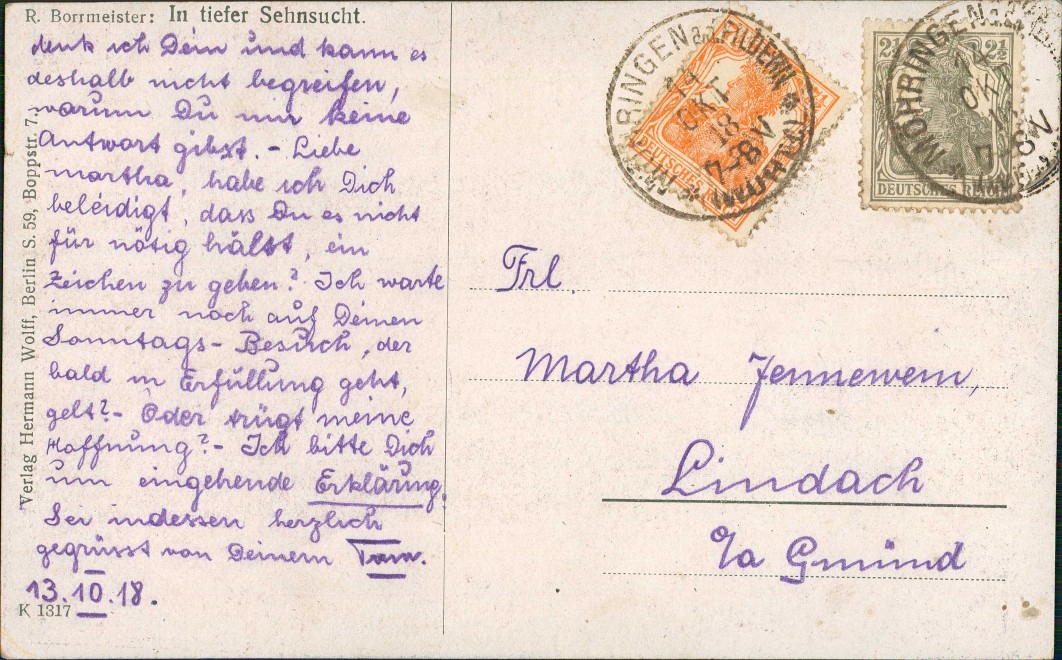 R. Borrmeister: In tiefer Sehnsucht.
denk ich Dein und kann es
deshalb nicht begreifen,
warum Du mir keine
Antwort gibst. - Liebe
Martha, habe ich Dich
beleidigt, dass Du es nicht
für nötig hälst, ein
Zeichen zu geben? Ich warte
immer noch auf Deinen
Sonntags-Besuch, der
bald in Erfüllung geht,
gelt?- Oder trügt meine
Hoffnung?- Ich bitte Dich
um eingehende Erklärung.
Sei indessen herzlich
gegrüsst von Deinem
13.10.18.
K 1317
Verlag Hermann Wolff, Berlin S. 59, Boppstr. 7.
MÖHRINGEN a.d. FILDERN
17 OKT 18
7-8 V
DEUTSCHES REICH
2½ 2½
DEUTSCHES REICH
MÖHRINGEN a.d.
OKT
7-8 V
Frl.
Martha Jennewein,
Lindach
b/a Gmünd